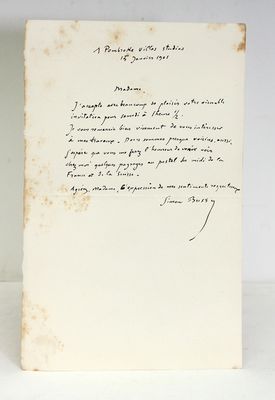 1 Pembroke Villas Studios
15 Janvier 1901
Madame,
J'accepte avec beaucoup de plaisir votre aimable
invitation pour samedi à 1 heure ½.
Je vous remercie bien vivement de vous intéresser
à mes travaux. Nous sommes presque voisins, aussi
j'espère que vous me ferez l'honneur de venir voir
chez moi quelques paysages au pastel du midi de la
France et de la Suisse.
Agréez, Madame, l'expression de mes sentiments respectueux
Simon Bussy